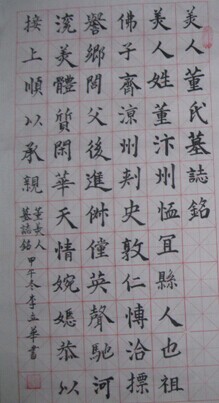 美人董氏墓誌銘
美人姓董汴州恤宜縣人也祖
佛子齊涼州刺史敦仁博洽摽
譽鄉閭父後進俶儻英聲馳河
渷美體質閑華天情婉嫕恭以
接上順以承親
董美人
墓誌銘 甲午冬李立華書